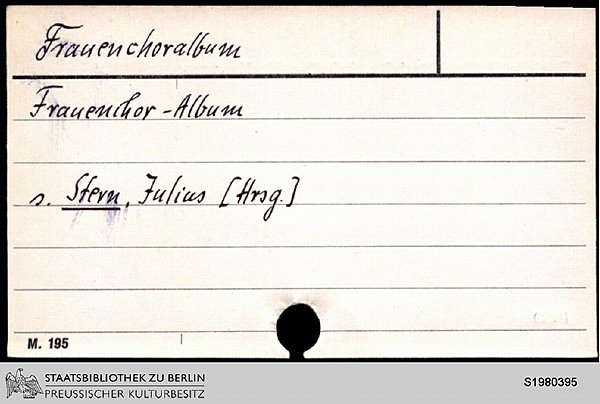 Frauenchoralbum
Frauenchor-Album
s. Stern, Julius [Hrsg.]
M. 195
STAATSBIBLIOTHEK ZU BERLIN
PREUSSISCHER KULTURBESITZ
S1980395